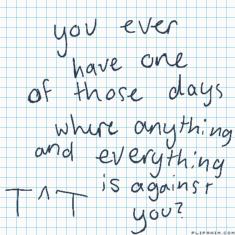 you ever
have one
of those days
where anything
and everything
is against
T^T
you?
FLIPANIM.COM